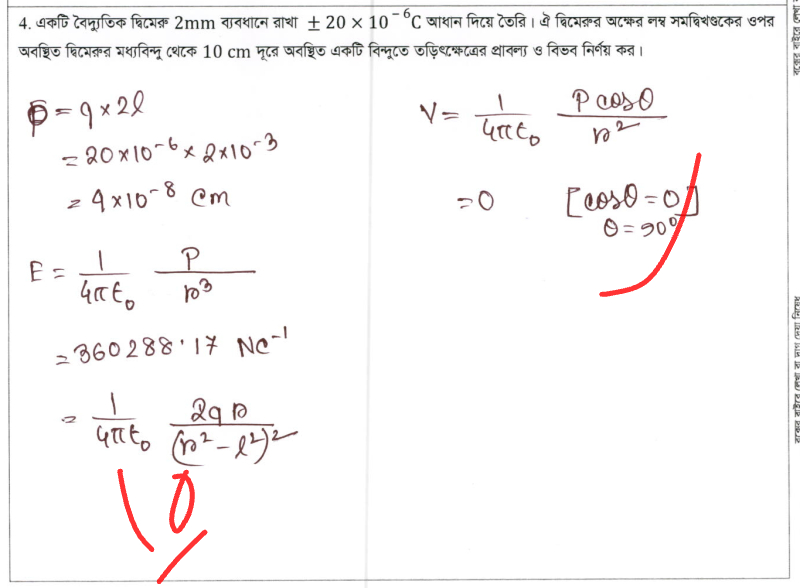 4. একটি বৈদ্যুতিক দ্বিমেরু 2mm ব্যবধানে রাখা ± 20 × 10⁻⁶C আধান দিয়ে তৈরি। ঐ দ্বিমেরুর অক্ষের লম্ব সমদ্বিখণ্ডকের ওপর
অবস্থিত দ্বিমেরুর মধ্যবিন্দু থেকে 10 cm দূরে অবস্থিত একটি বিন্দুতে তড়িৎক্ষেত্রের প্রাবল্য ও বিভব নির্ণয় কর।
P = q × 2l
= 20×10⁻⁶ × 2×10⁻³
= 4×10⁻⁸ cm
E = 1/4πε₀ P/r³
= 360288.17 NC⁻¹
= 1/4πε₀ 2qr/(r² - l²)²
V = 1/4πε₀ P cosθ/r²
= 0 [cosθ = 0]
θ = 90°
10